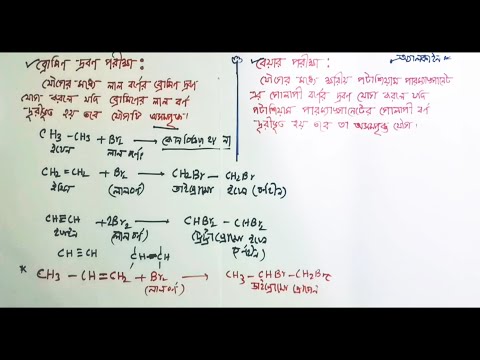 ✓ ব্রোমিন দ্রবণ পরীক্ষা :
যৌগের মধ্যে লাল বর্ণের ব্রোমিন দ্রবণ
যোগ করলে যদি ব্রোমিনের লাল বর্ণ
দূরীভূত হয় তবে যৌগটি অসম্পৃক্ত।
CH3 – CH3 + Br2 → কোন বিক্রিয়া হয় না
ইথেন (লাল বর্ণ)
CH2 = CH2 + Br2 → CH2Br – CH2Br
ইথিন (লালবর্ণ) ডাইব্রোমো ইথেন (বর্ণহীন)
CH≡CH + 2Br2 → CHBr2 – CHBr2
ইথাইন (লালবর্ণ) টেট্রাব্রোমো ইথেন
বর্ণহীন
CH ≡ CH CH=CH
* CH3 – CH = CH2 + Br2 → CH3 – CHBr – CH2Br
(লালবর্ণ) ডাইব্রোমো প্রোপেন
✓ বেয়ার পরীক্ষা :
যৌগের মধ্যে ক্ষারীয় পটাশিয়াম পারম্যাঙ্গানেট
এর গোলাপী বর্ণের দ্রবণ যোগ করলে যদি
পটাশিয়াম পারম্যাঙ্গানেটের গোলাপী বর্ণ
দূরীভূত হয় তবে তা অসম্পৃক্ত যৌগ।